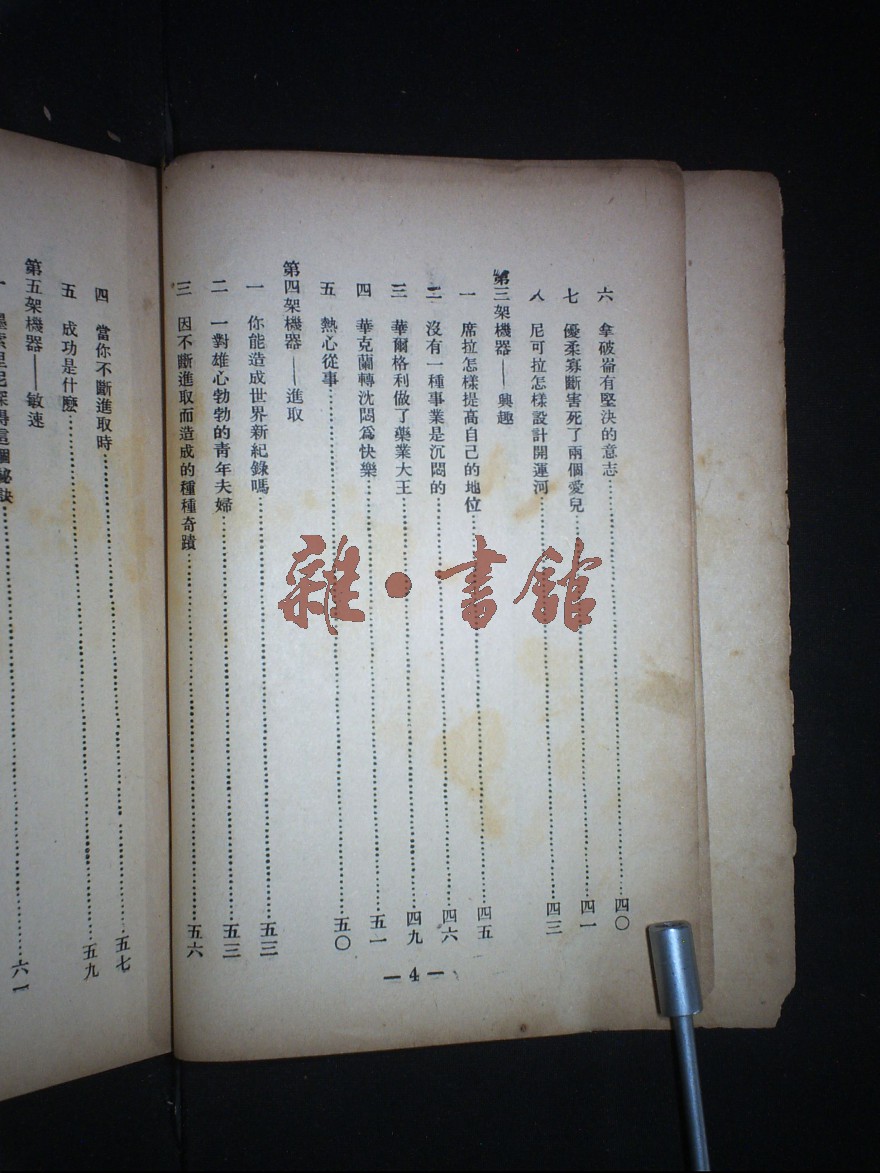 六 拿破崙有堅決的意志……四〇
七 優柔寡斷害死了兩個愛兒……四一
八 尼可拉怎樣設計開運河……四三
第三架機器——興趣
一 席拉怎樣提高自己的地位……四五
二 沒有一種事業是沉悶的……四六
三 華爾格利做了藥業大王……四九
四 華克蘭轉沈悶爲快樂……五一
五 熱心從事……五〇
第四架機器——進取
一 你能造成世界新紀錄嗎……五三
二 一對雄心勃勃的靑年夫婦……五三
三 因不斷進取而造成的種種奇蹟……五六
—4—
四 當你不斷進取時……五七
五 成功是什麽……五九
第五架機器——敏速
一 墨索里尼深得這個秘訣……六一
雜·書館